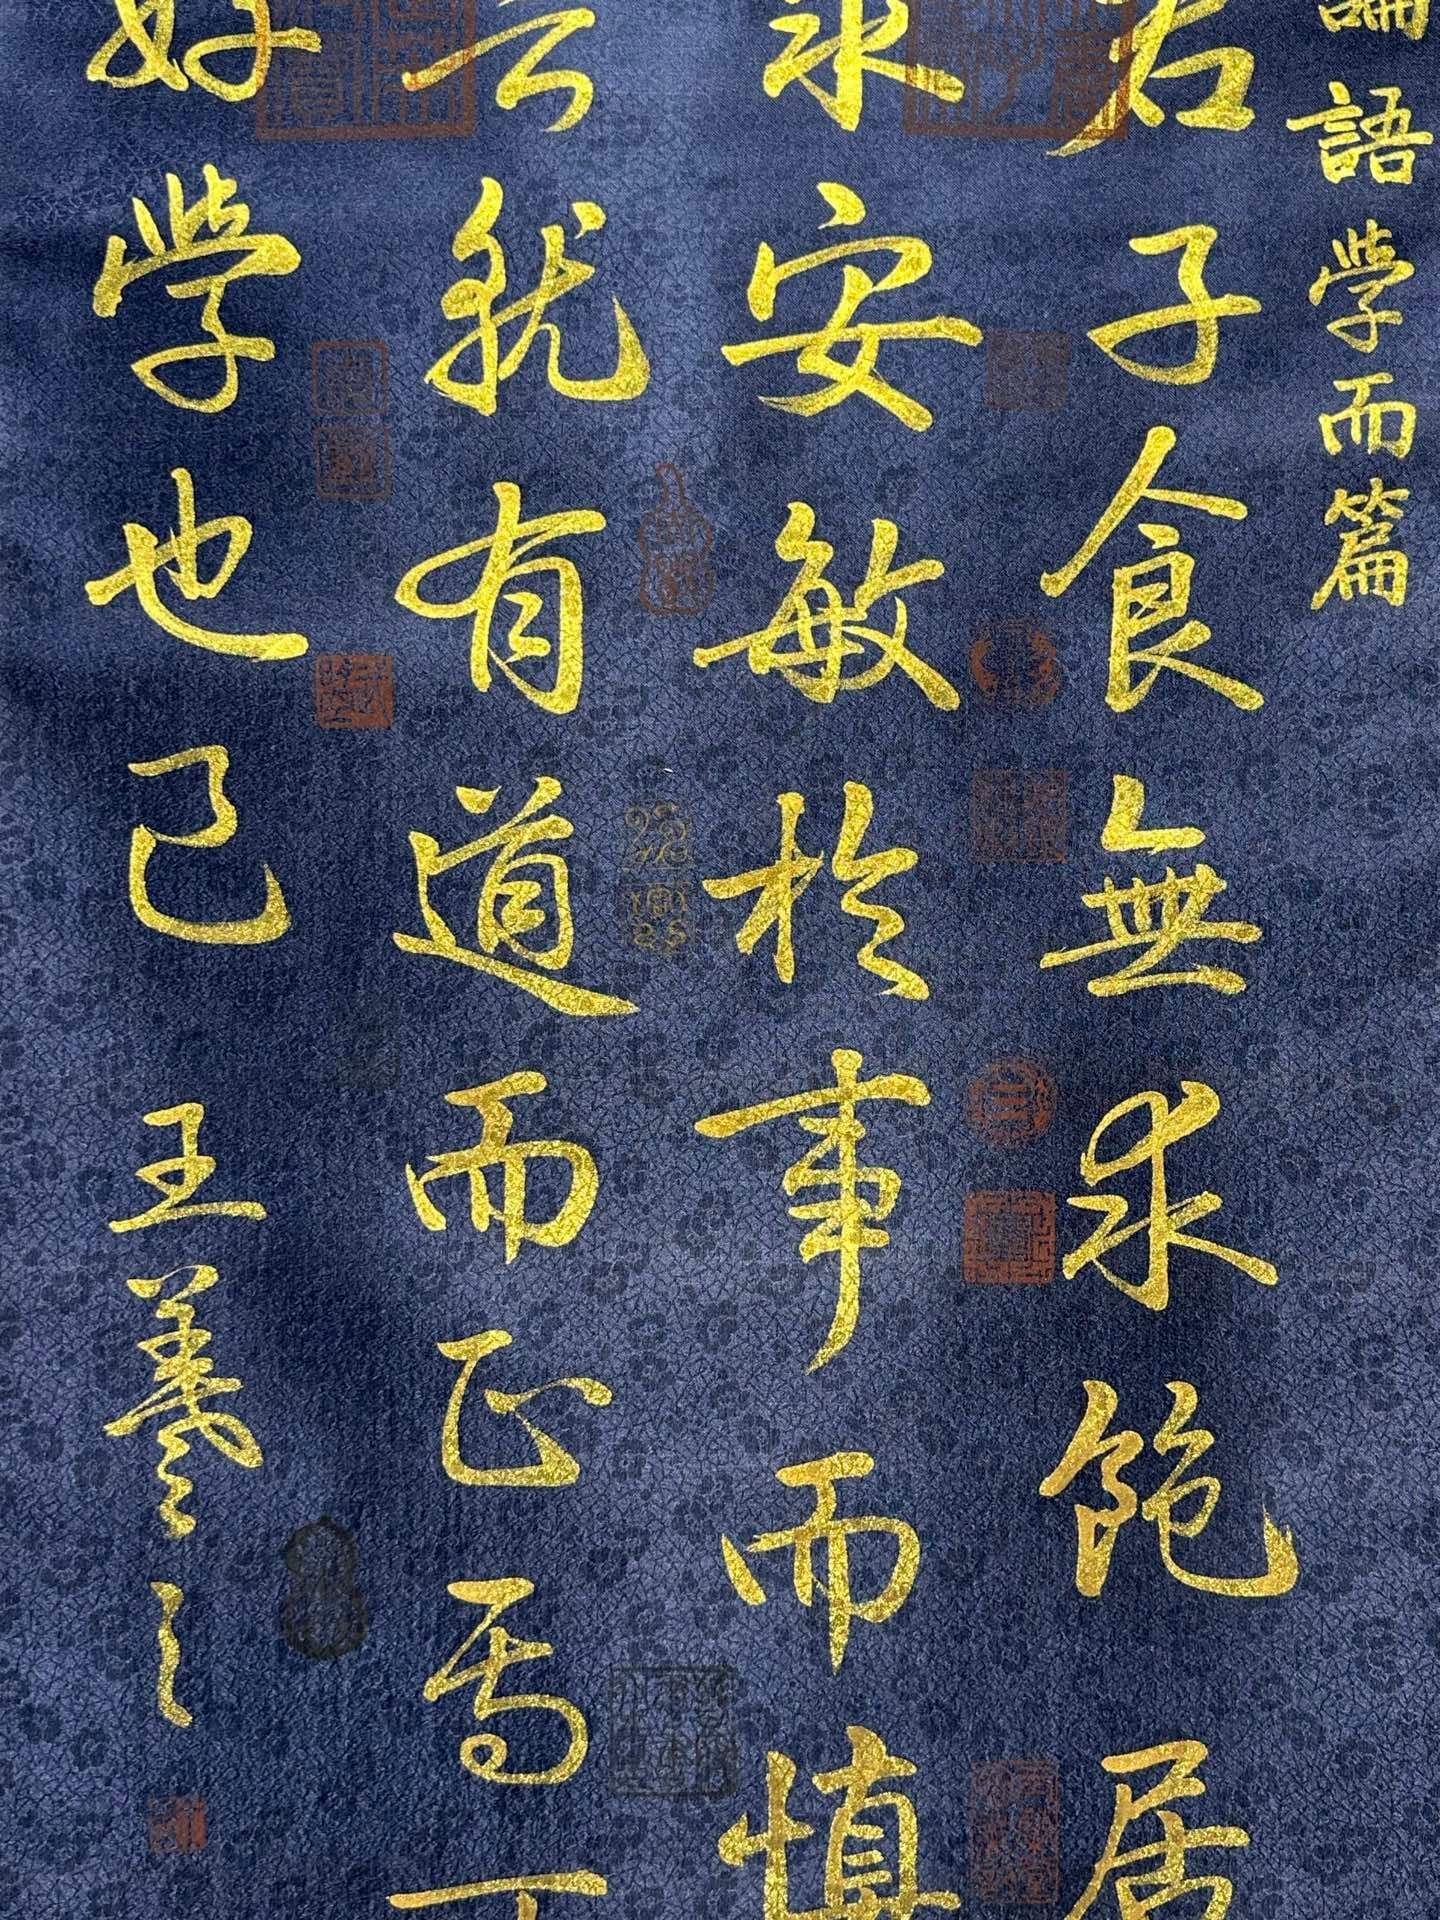 論語學而篇
君子食無求飽居
求安敏於事而慎
言就有道而正焉
好學也已
王羲之